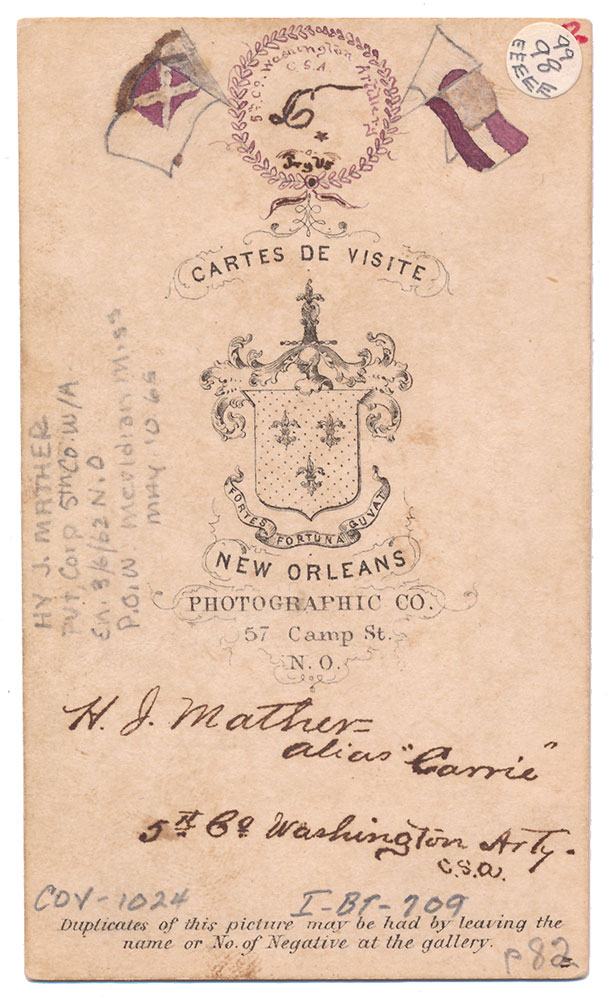 5th Co. Washington Artillery
C.S.A.
Try Us
99
98
EEEEE
EEE
CARTES DE VISITE
FORTES FORTUNA GUVAT
NEW ORLEANS
PHOTOGRAPHIC CO.
57 Camp St.
N. O.
HY J. MATHER
PVT CORP 5TH CO. W/A
En. 3/6/62 N.O
P.O.W meridian miss
MAY 10 65
H. J. Mather
alias "Carrie"
5th Co Washington Arty.
C.S.A.
COV-1024
I-BT-709
Duplicates of this picture may be had by leaving the
name or No. of Negative at the gallery.
p 82